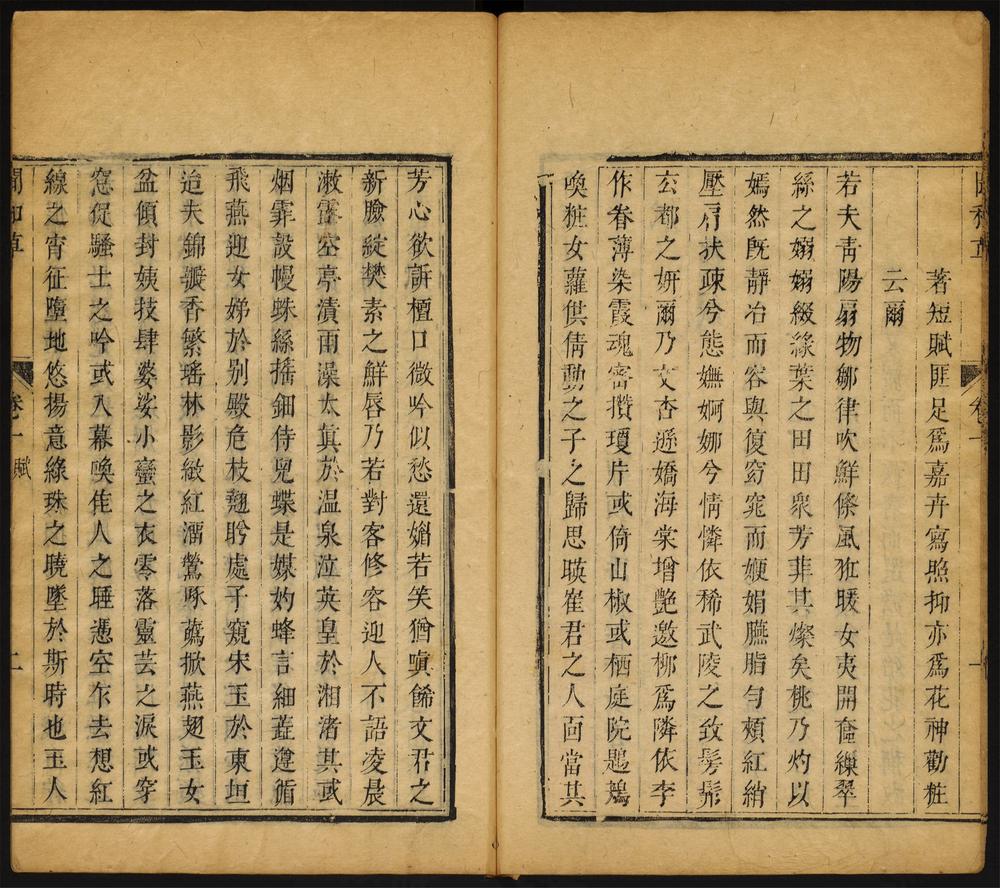 著短賦匪足爲嘉卉寫照抑亦爲花神勸粧
云爾
若夫青陽扇物鄒律吹鮮條風狂暖女夷開奩繅翠
絲之嫋嫋綴綠葉之田田衆芳菲其燦矣桃乃灼以
嫣然旣靜冶而容與復窈窕而㛹娟臙脂勻頰紅綃
壓肩扶疎兮態嫵婀娜兮情憐依稀武陵之致髣髴
玄都之妍爾乃文杏遜嬌海棠增艶邀柳爲隣依李
作眷薄染霞魂密攢瓊片或倚山椒或栖庭院鶗鴂
喚粧女蘿供倩動之子之歸思暎崔君之人面當其
芳心欲訴檀口微吟似愁還媚若笑猶嗔餙文君之
新臉綻樊素之鮮唇乃若對客修容迎人不語凌晨
漱露空亭漬雨澡太眞於温泉泣英皇於湘渚其或
烟霏設幔蛛絲搖鈿侍兒蝶是媒妁蜂言細蕋遵循
飛燕迎女娣於别殿危枝翹盻處子窺宋玉於東垣
迨夫錦瓣香繁瑤林影緻紅溜鶯啄蔫掀燕翅玉女
盆傾封姨技肆婆娑小蠻之衣零落靈芸之淚或穿
窓促騷士之吟或入幕喚佳人之睡憑空乍去想紅
線之宵征墮地悠揚意綠珠之曉墜於斯時也玉人
卷一 賦
二